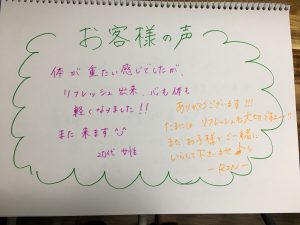 お客様の声
体が重たい感じでしたが、
リフレッシュ出来、心も体も
軽くなりました!!
また来ます
20代 女性
ありがとうございます!!!
たまには リフレッシュも大切ですよ
また お子様と ご一緒に
いらして下さいませ♪